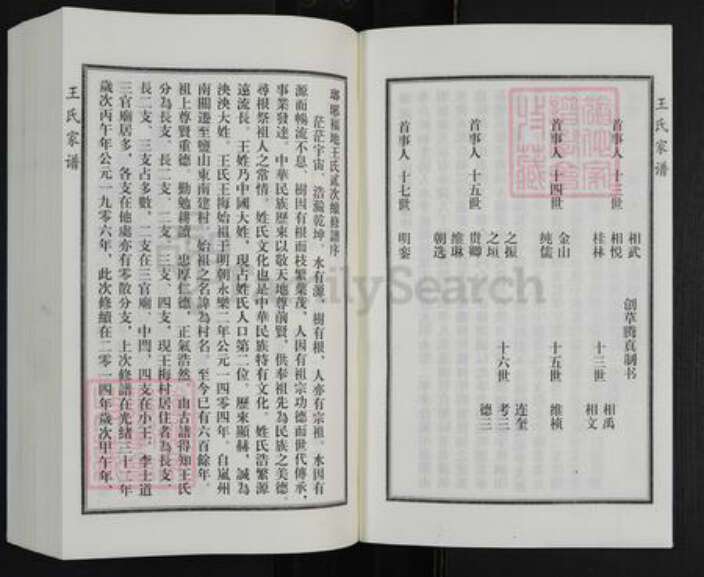 王氏家谱
首事人 十三世
相武
相悦
桂林
首事人 十四世
金山
纯儒
首事人 十五世
之振
之垣
贵卿
维琳
朝选
首事人 十七世
明銮
创草腾真制书
十三世
相禹
相文
十五世
维桢
十六世
连奎
考三
德三
瑯琊福地王氏贰次续修譜序
茫茫宇宙，浩瀚乾坤，水有源，樹有根，人亦有宗祖。水因有
源而暢流不息，樹因有根而枝繁葉茂，人因有祖宗功德而世代傳承，
事業發達。中華民族歷來以敬天地尊前賢，供奉祖先為民族之美德。
尋根祭祖人之常情。姓氏文化也是中華民族特有文化。姓氏浩繁源
遠流長。王姓乃中國大姓，現占姓氏人口第二位。歷來顯赫，誠為
泱泱大姓。王氏王梅始祖于明朝永樂二年公元一四零四年，自嵐州
南關遷至鹽山東南建村，始祖之名諱為村名。至今已有六百餘年。
祖上尊賢重德，勤勉耕讀，忠厚仁德，正氣浩然。由古譜得知王氏
分為長支、長二支、二支、三支、四支，現王梅村居住者為長支、
長二支、三支占多數，二支在三官廟、中門，四支在小王，李士道
三官廟居多，各支在他處亦有零散分支，上次修譜在光緒三十二年
歲次丙午年公元一九零六年，此次修續在二零一四年歲次甲午年，
王氏家谱
FamilySearch